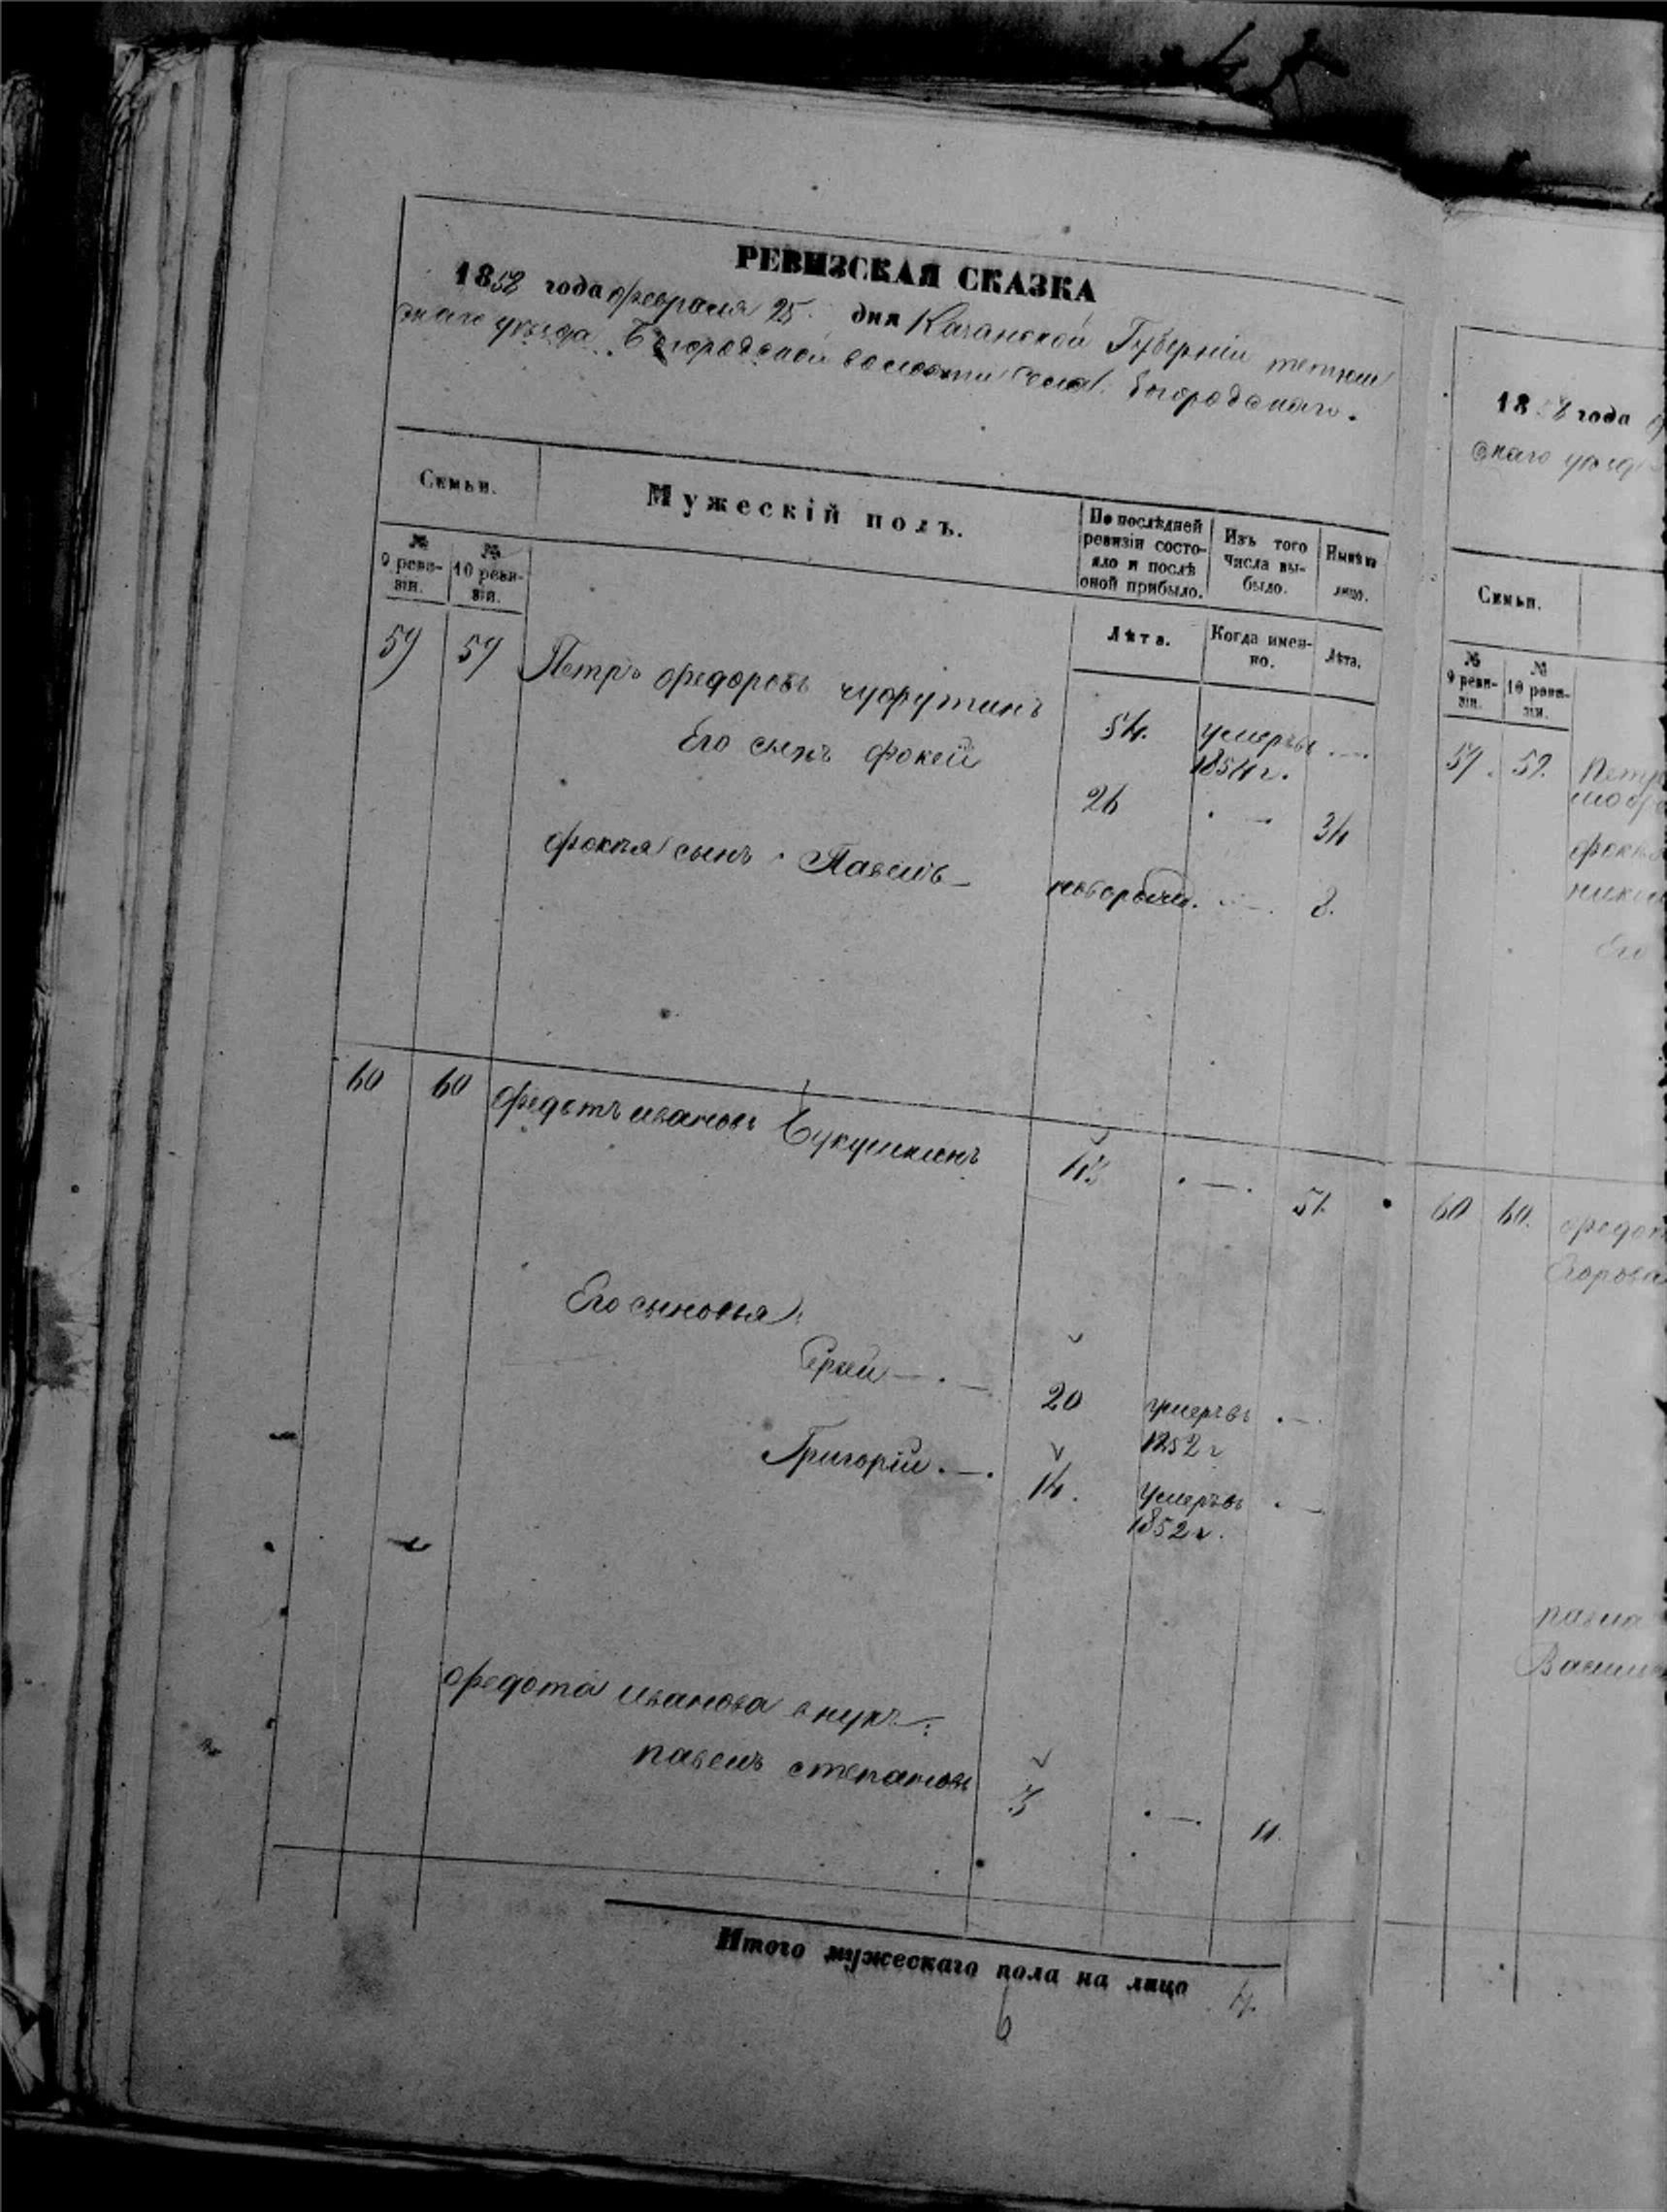 РЕВИЗСКАЯ СКАЗКА
1858 года февраля 25 дня Казанской Губерніи тетюш
скаго уезда Богородской волости села Богородскаго.
Семьи.
Мужескій полъ.
По послѣдней ревизіи состо-
яло и послѣ
оной прибыло.
Изъ того
числа вы-
было.
Нынѣ на
лицо.
№
9 реви-
зіи.
№
10 реви-
зіи.
Лѣта.
Когда имен-
но.
Лѣта.
59 59 Петръ федоровъ чуфутинъ 54. умеръ
1854 г.
Его сынъ фокей 26 34
фокея сынъ Павелъ новорожд. 8.
60 60 федотъ ивановъ Букушкинъ 43 51.
Его сыновья:
20 умеръ
1852 г
Григорій 14. умеръ
1852 г.
федота иванова внукъ:
павелъ степановъ 3 11.
Итого мужескаго пола на лицо 4.
6
1858 года
скаго уезд
Семьи.
№
9 реви-
зіи.
№
10 реви-
зіи.
59. 59. Петр
фокея
Его
60 60. федот
Егорова
павла
Васили